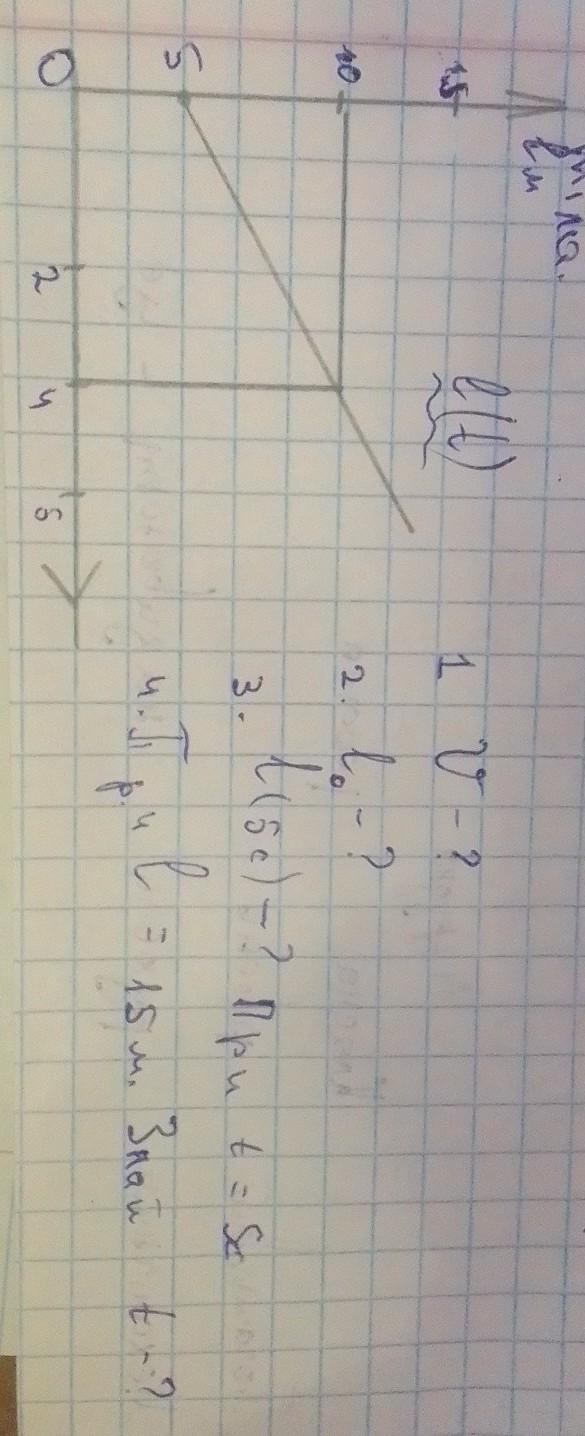 l м
15
10
5
0
2
4
6
l(t)
1 V - ?
2. l₀ - ?
3. l(5c) - ? При t = 5c
4. При l = 15 м. Знайти t - ?